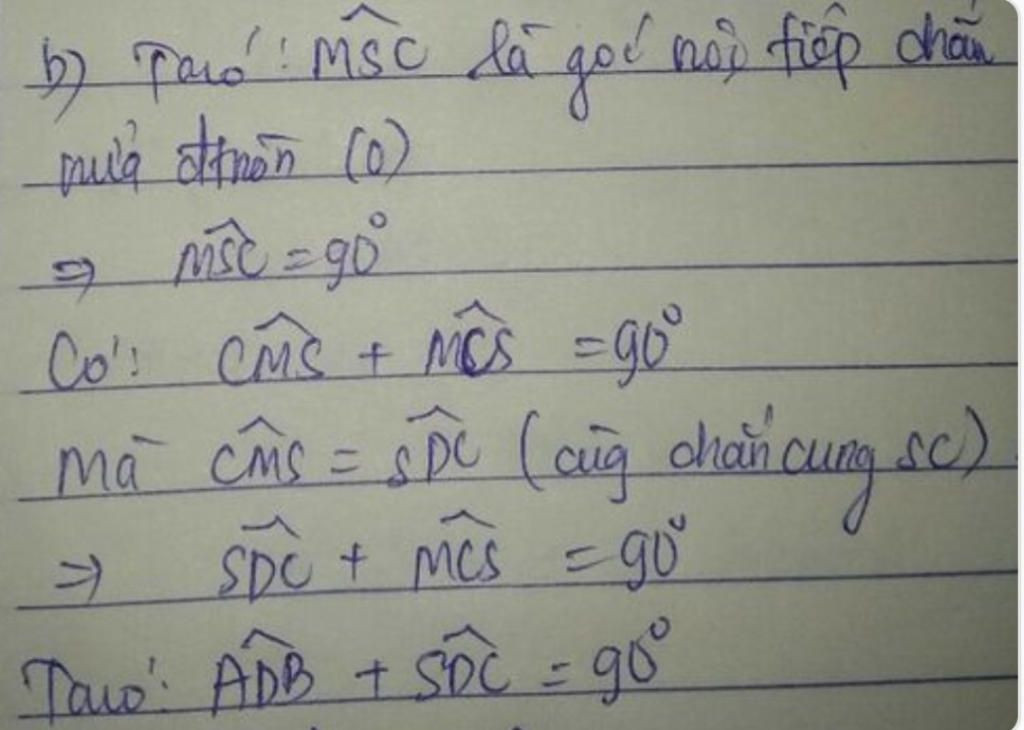 b) Ta có: \widehat{MSC} là góc nội tiếp chắn
nửa đtròn (O)
⇒ \widehat{MSC} = 90°
Có: \widehat{CMS} + \widehat{MCS} = 90°
Mà \widehat{CMS} = \widehat{SDC} (cùg chắn cung SC)
⇒ \widehat{SDC} + \widehat{MCS} = 90°
Ta có: \widehat{ADB} + \widehat{SDC} = 90°